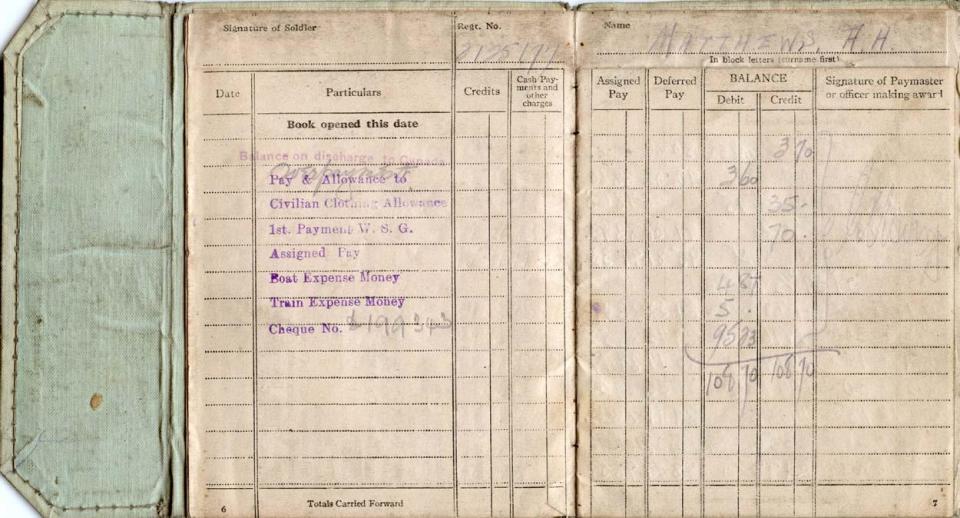 Signature of Soldier Regt. No.
Date Particulars Credits Cash Pay-
ments and
other
charges
Book opened this date
Balance on discharge to Canada
Pay & Allowance to
Civilian Clothing Allowance
1st. Payment W. S. G.
Assigned Pay
Boat Expense Money
Train Expense Money
Cheque No.
Totals Carried Forward
6
Name MATTHEWS, A.H.
In block letters (surname first)
Assigned
Pay Deferred
Pay BALANCE
Debit Credit Signature of Paymaster
or officer making award
3 70
3 60
35.
70.
4 87
5.
95 23
108 70 108 70
7